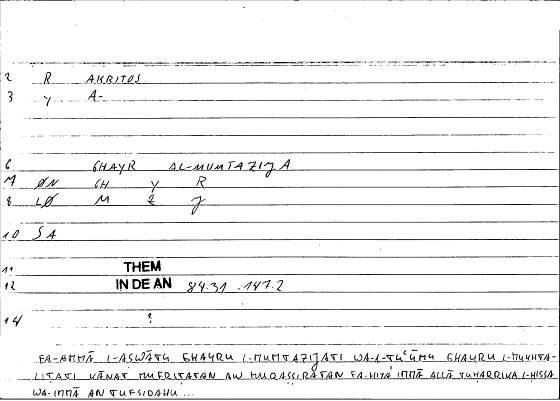 2 R AKRITOS
3 y A-
6 GHAYR AL-MUMTAZIJ A
M ØN GH Y R
8 LØ M Z J
10 SA
11 THEM
12 IN DE AN 84.31 .147.2
14 ?
FA-AMMĀ L-AṢWĀTU GHAYRU L-MUMTAZIJATI WA-Ṭ-ṬUʿŪMU GHAYRU L-MUKHTA-
LIṬATI KĀNAT MUFRIṬATAN AW MUQAṢṢIRATAN FA-HIYA IMMĀ ALLĀ TUḤARRIKA L-ḤISSA
WA-IMMĀ AN TUFSIDAHU ...